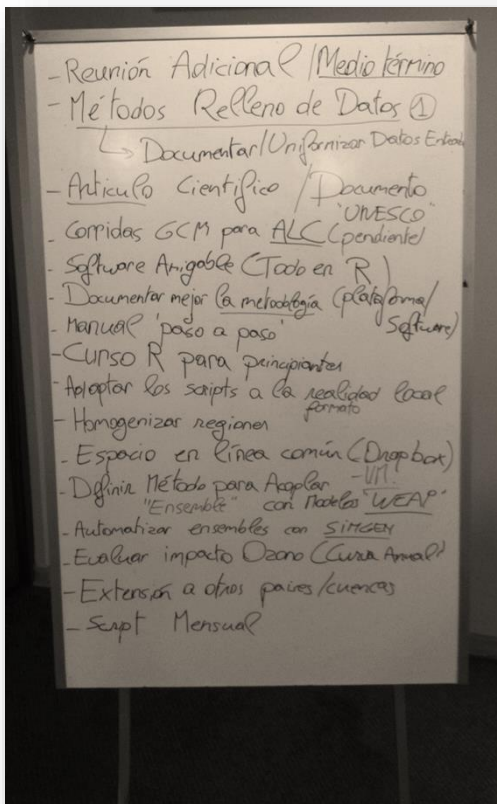 - Reunión Adicional / Medio término
- Métodos Relleno de Datos ①
↳ Documentar/Uniformizar Datos Entrada
- Artículo Científico / Documento
"UNESCO"
- Corridas GCM para ALC (pendiente)
- Software Amigable (Todo en R)
- Documentar mejor la metodología (plataforma/
Software)
- Manual 'paso a paso'
- Curso R para principiantes
- Adaptar los scripts a la realidad local
formato
- Homogenizar regiones
- Espacio en línea común (Dropbox)
- VM.
- Definir Método para Acoplar
"Ensemble" con Modelos "WEAP"
- Automatizar ensembles con SIMGEN
- Evaluar impacto Ozono (Curva Anual)
- Extensión a otros países/cuencas
- Script Mensual